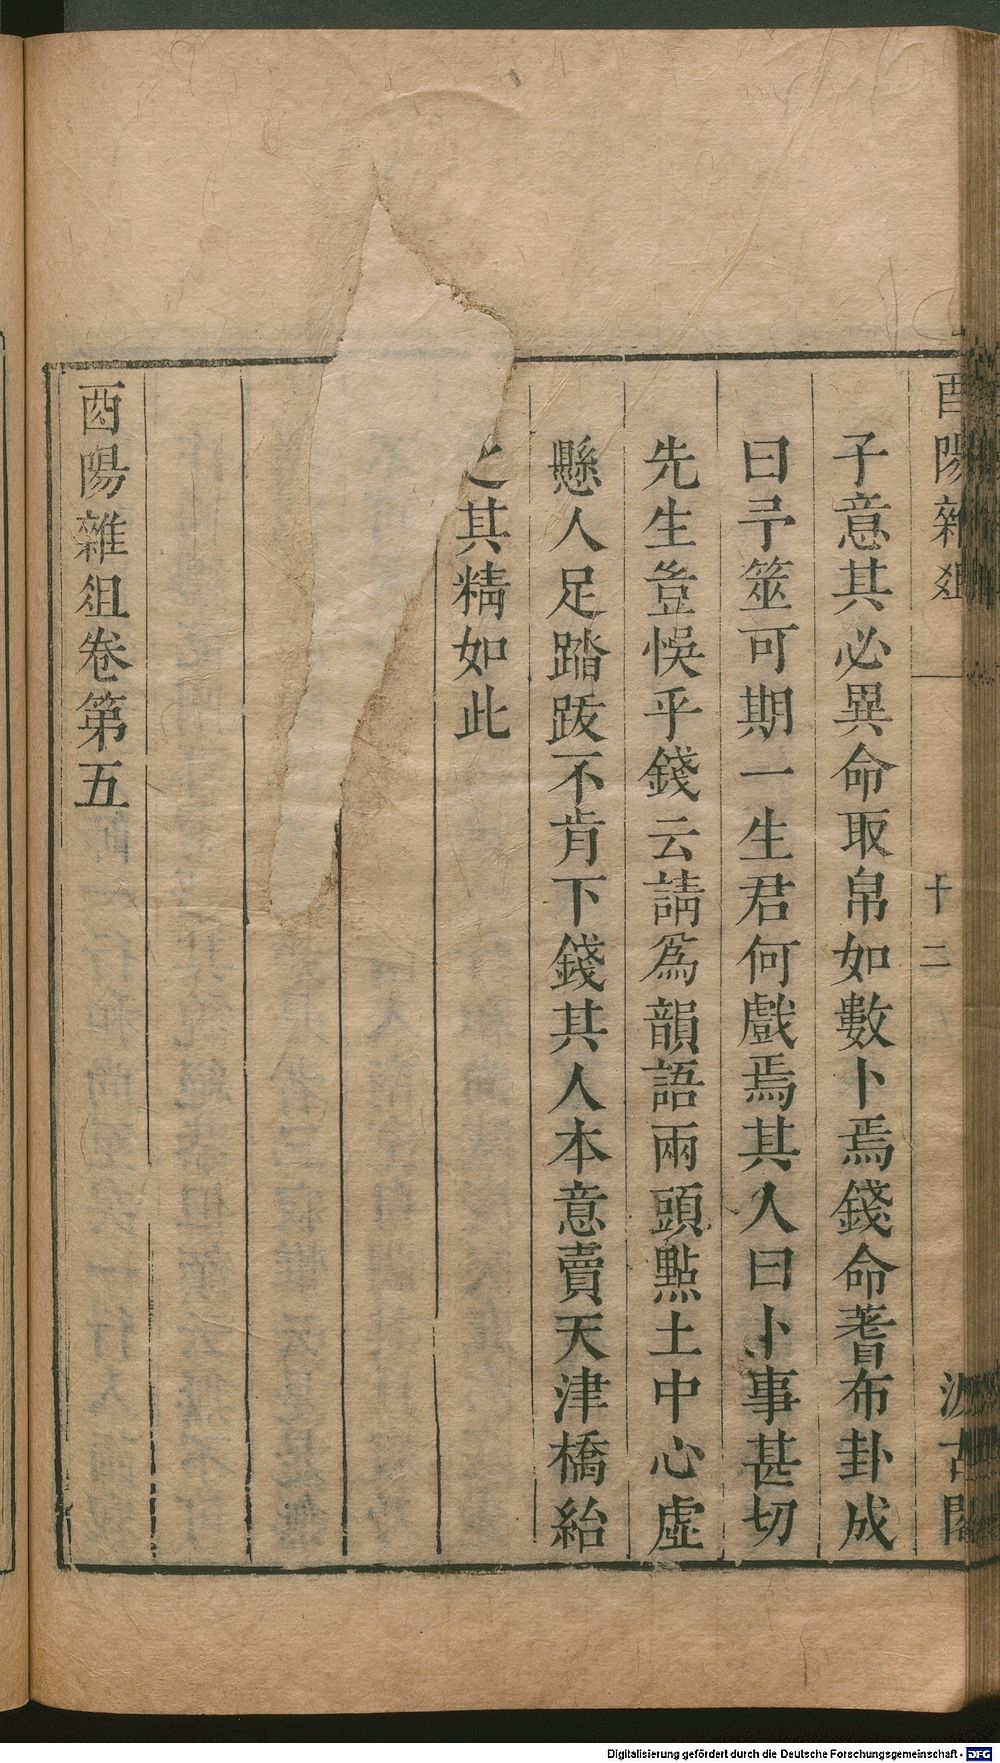 酉陽雜俎
十二
汲古閣
子意其必異命取帛如數卜焉錢命蓍布卦成
曰予筮可期一生君何戲焉其人曰卜事甚切
先生豈悞乎錢云請為韻語兩頭點土中心虛
懸人足踏跋不肯下錢其人本意賣天津橋紿
之其精如此
酉陽雜俎卷第五
Digitalisierung gefördert durch die Deutsche Forschungsgemeinschaft - DFG